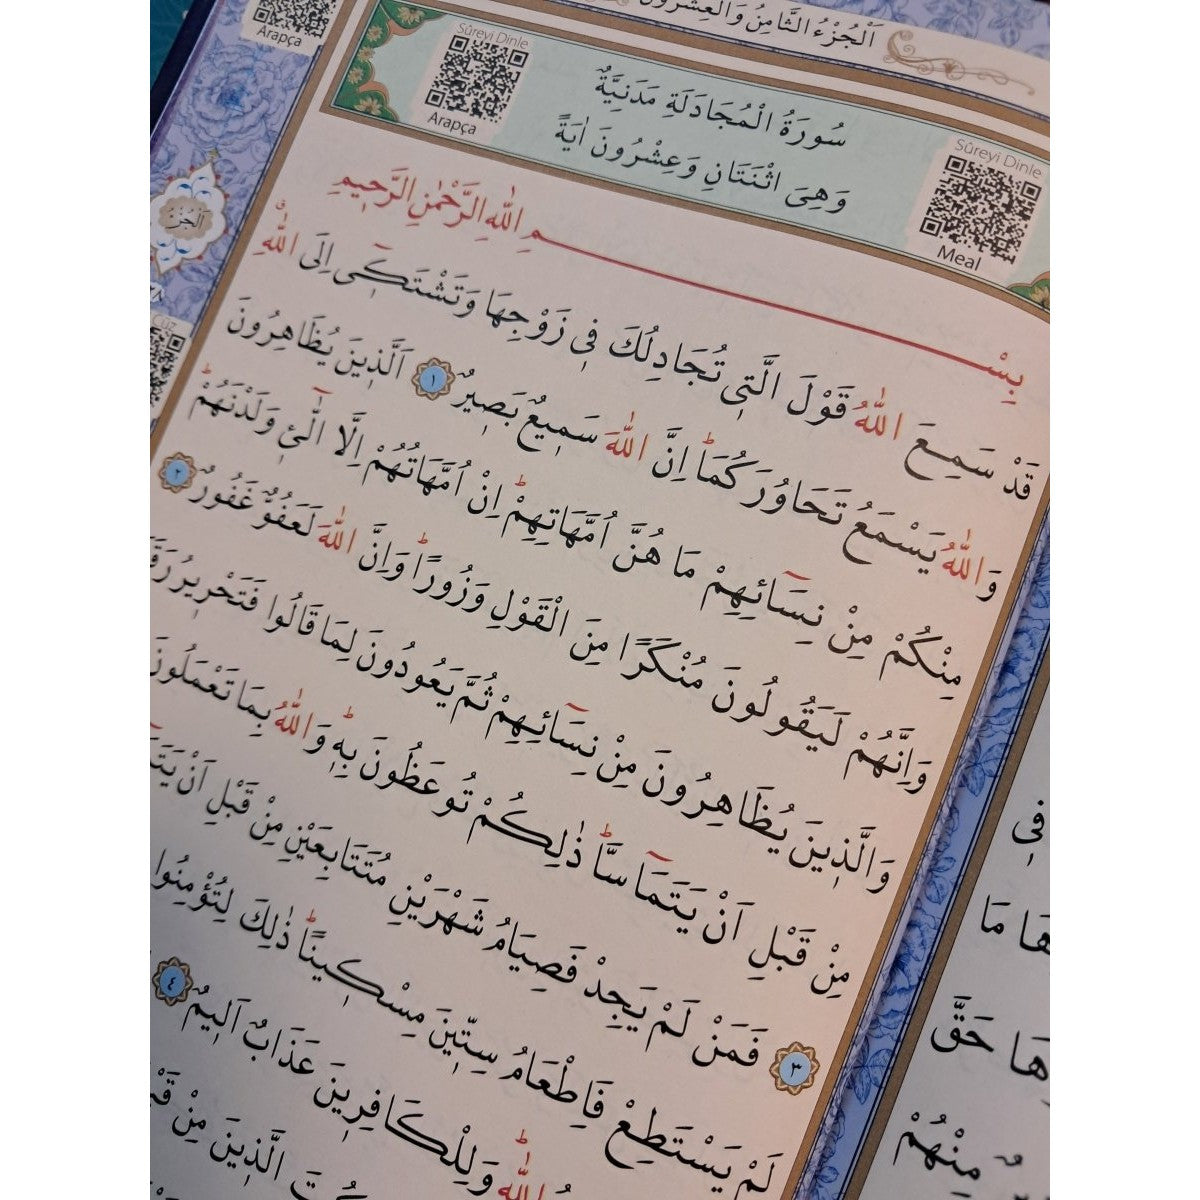 اَلْجُزْءُ الثَّامِنُ وَالْعِشْرُونَ
Arapça
Sûreyi Dinle
Arapça
سُورَةُ الْمُجَادَلَةِ مَدَنِيَّةٌ
وَهِىَ اثْنَتَانِ وَعِشْرُونَ اٰيَةً
Sûreyi Dinle
Meal
اَلْجُزْءُ
Cüz
بِسْمِ اللّٰهِ الرَّحْمٰنِ الرَّحٖيمِ
قَدْ سَمِعَ اللّٰهُ قَوْلَ الَّتٖى تُجَادِلُكَ فٖى زَوْجِهَا وَتَشْتَكٖٓى اِلَى اللّٰهِۗ
وَاللّٰهُ يَسْمَعُ تَحَاوُرَكُمَاؕ اِنَّ اللّٰهَ سَمٖيعٌ بَصٖيرٌ ١ اَلَّذٖينَ يُظَاهِرُونَ
مِنْكُمْ مِنْ نِسَٓائِهِمْ مَا هُنَّ اُمَّهَاتِهِمْؕ اِنْ اُمَّهَاتُهُمْ اِلَّا الّٰٓـٖٔى وَلَدْنَهُمْؕ
وَاِنَّهُمْ لَيَقُولُونَ مُنْكَرًا مِنَ الْقَوْلِ وَزُورًاؕ وَاِنَّ اللّٰهَ لَعَفُوٌّ غَفُورٌ ٢
وَالَّذٖينَ يُظَاهِرُونَ مِنْ نِسَٓائِهِمْ ثُمَّ يَعُودُونَ لِمَا قَالُوا فَتَحْرٖيرُ
مِنْ قَبْلِ اَنْ يَتَمَٓاسَّاؕ ذٰلِكُمْ تُوعَظُونَ بِهٖؕ وَاللّٰهُ بِمَا تَعْمَلُونَ
٣ فَمَنْ لَمْ يَجِدْ فَصِيَامُ شَهْرَيْنِ مُتَتَابِعَيْنِ مِنْ قَبْلِ اَنْ
لَمْ يَسْتَطِعْ فَاِطْعَامُ سِتّٖينَ مِسْكٖينًاؕ ذٰلِكَ لِتُؤْمِنُوا
اللّٰهِؕ وَلِلْكَافِرٖينَ عَذَابٌ اَلٖيمٌ ٤
الَّذٖينَ مِنْ
فٖى
هَا مَا
حَقَّ
مِنْهُمْ